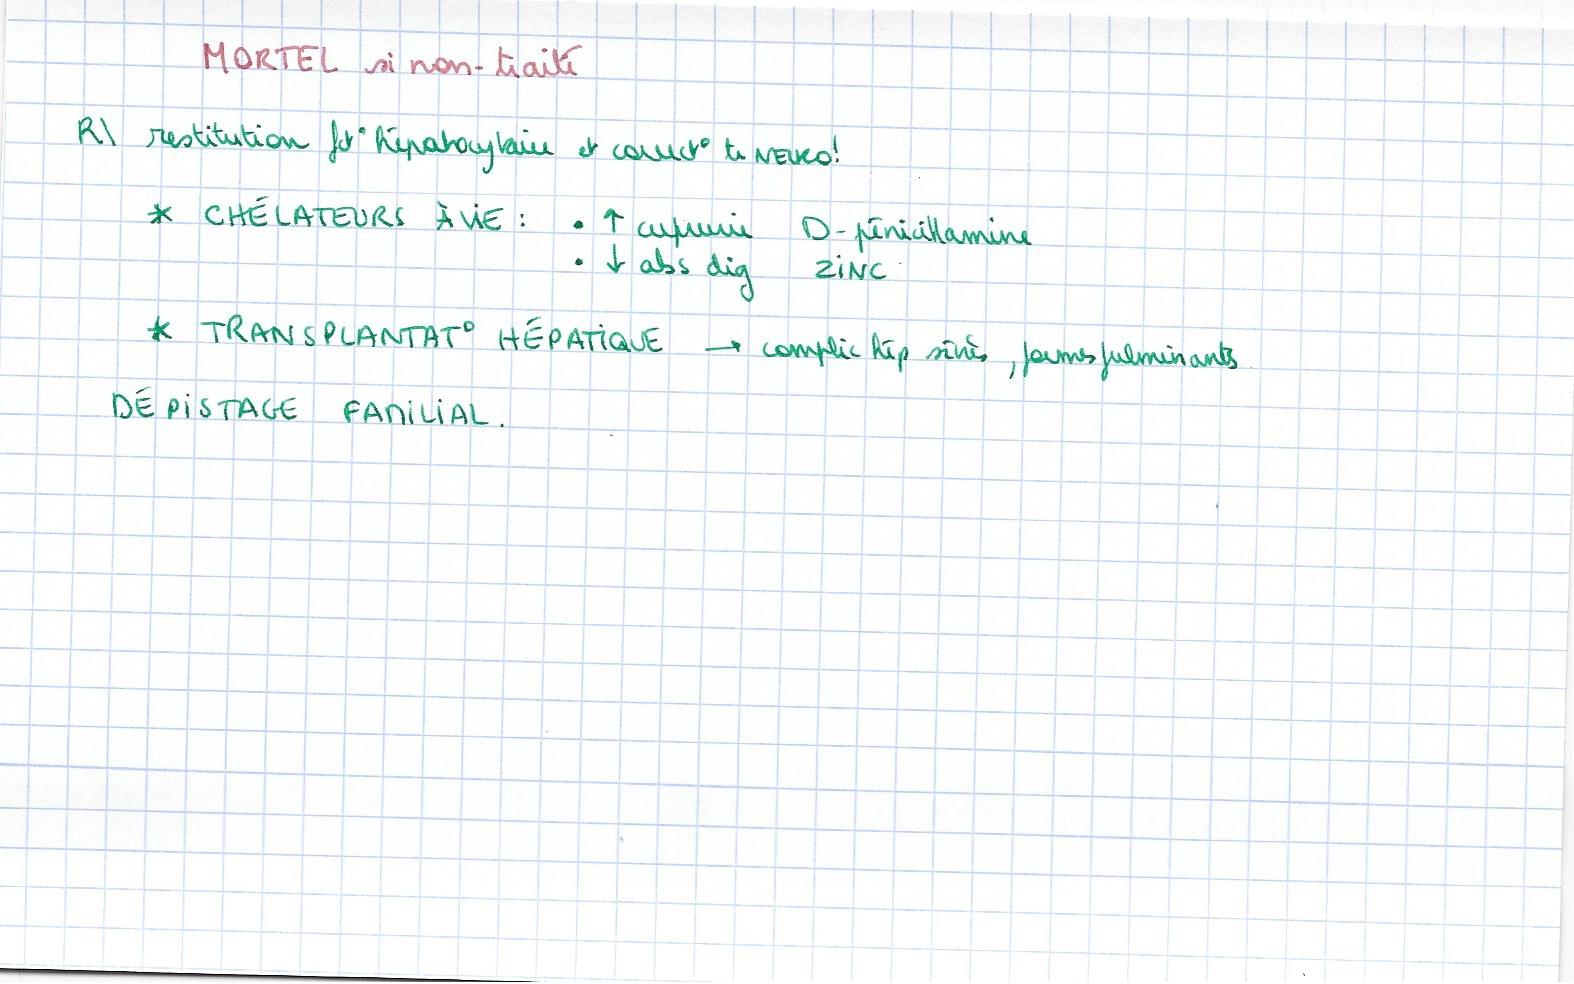 MORTEL si non-traité
R\ restitution fct° hépatocytaire et correct° tb NEURO!
* CHÉLATEURS À VIE : • ↑ cuprurie D-pénicillamine
• ↓ abs dig ZINC
* TRANSPLANTAT° HÉPATIQUE → complic hép sévès, formes fulminants
DÉPISTAGE FAMILIAL.